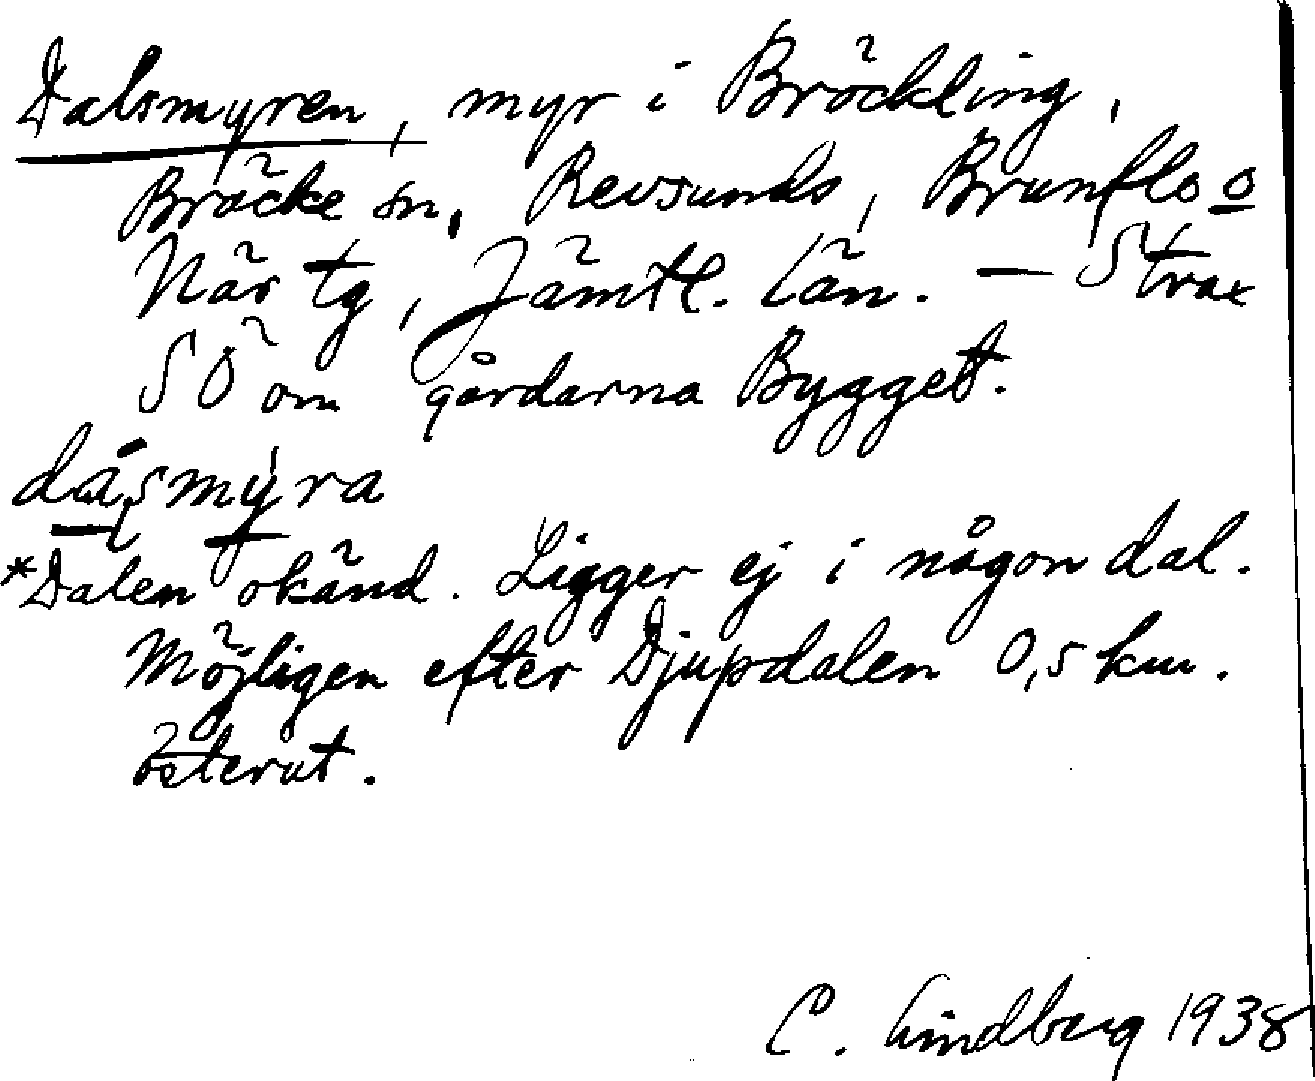 Dalsmyren, myr i Bräckling,
Bräcke sn, Revsunds, Brunflo o
När tg, Jämtl. län. – Strax
SÖ om gårdarna Bygget.
dásmýra
*Dalen okänd. Ligger ej i någon dal.
Möjligen efter Djupdalen 0,5 km.
österut.
C. Lindberg 1938